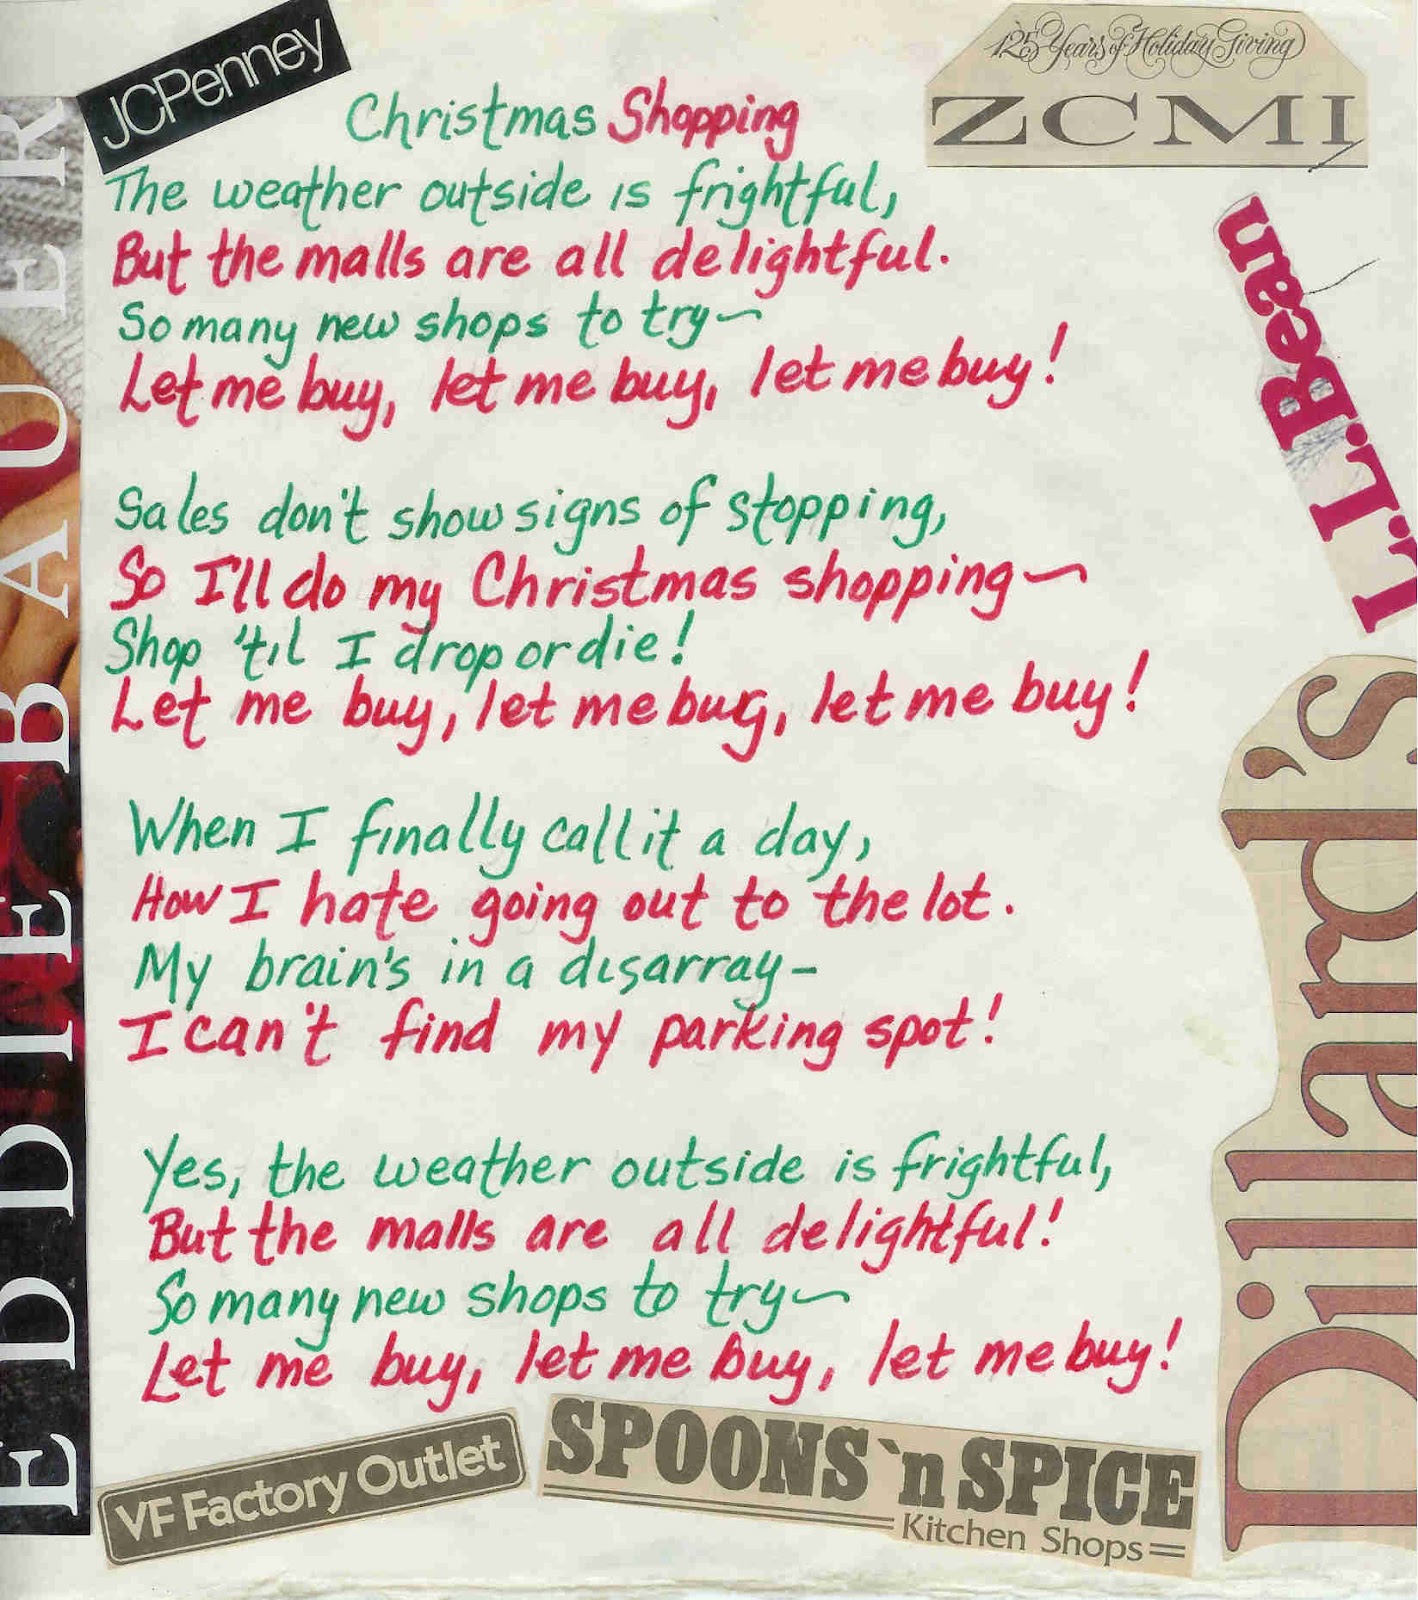 JCPenney
125 Years of Holiday Giving
ZCMI
Christmas Shopping
The weather outside is frightful,
But the malls are all delightful.
So many new shops to try~
Let me buy, let me buy, let me buy!
Sales don't show signs of stopping,
So I'll do my Christmas shopping~
Shop 'til I drop or die!
Let me buy, let me buy, let me buy!
When I finally call it a day,
How I hate going out to the lot.
My brain's in a disarray-
I can't find my parking spot!
Yes, the weather outside is frightful,
But the malls are all delightful!
So many new shops to try~
Let me buy, let me buy, let me buy!
EDDIE BAUER
L.L.Bean
Dillard's
VF Factory Outlet
SPOONS `n SPICE
Kitchen Shops